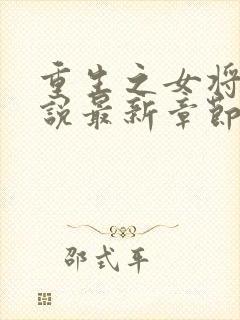 重生之女将
說最新章節
邵式平